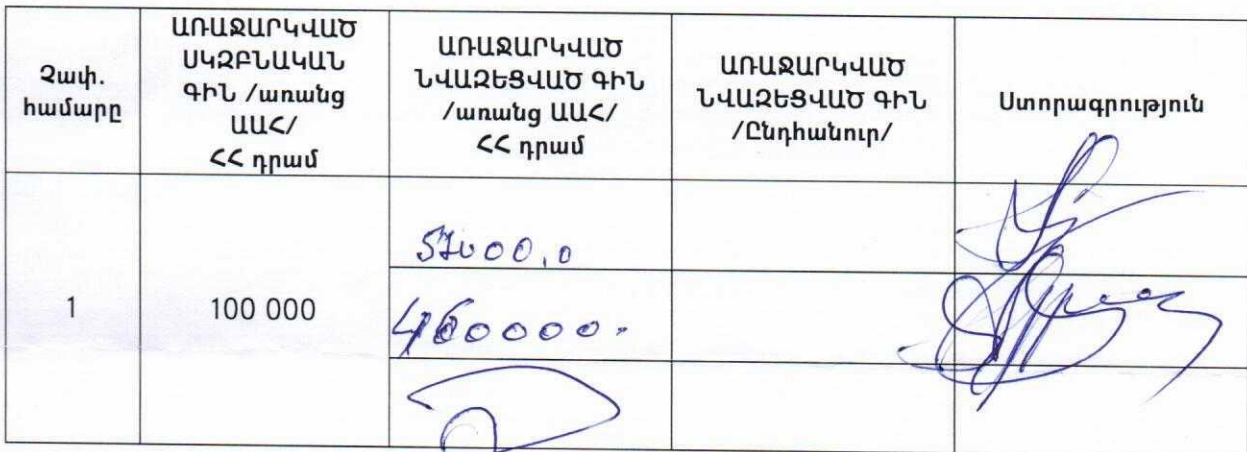 Չափ.
համարը
ԱՌԱՋԱՐԿՎԱԾ
ՍԿԶԲՆԱԿԱՆ
ԳԻՆ /առանց
ԱԱՀ/
ՀՀ դրամ
ԱՌԱՋԱՐԿՎԱԾ
ՆՎԱԶԵՑՎԱԾ ԳԻՆ
/առանց ԱԱՀ/
ՀՀ դրամ
ԱՌԱՋԱՐԿՎԱԾ
ՆՎԱԶԵՑՎԱԾ ԳԻՆ
/Ընդհանուր/
Ստորագրություն
1
100 000
57000,0